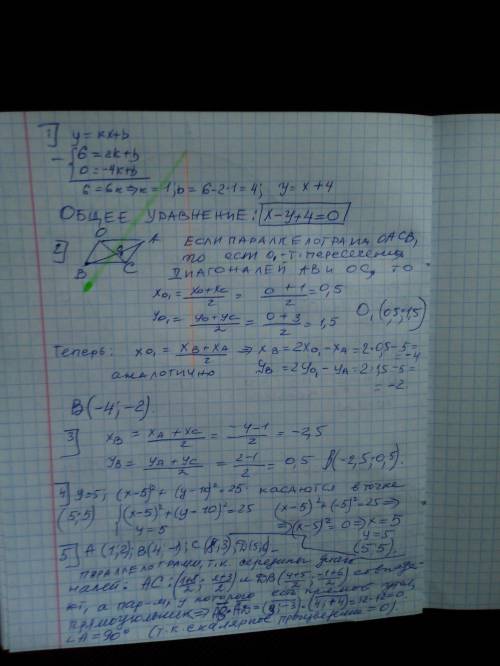 1] y = kx+b
6 = 2k+b
0 = -4k+b
6=6k ⇒ k=1, b = 6-2·1=4; y = x+4
ОБЩЕЕ УРАВНЕНИЕ: x-y+4=0
2] O A ЕСЛИ ПАРАЛЛЕЛОГРАММ OACB,
B C то есть O₁ -т. пересечения
ДИАГОНАЛЕЙ AB и OC, то
xO₁ = xO+xC/2 = 0+1/2 = 0,5
yO₁ = yO+yC/2 = 0+3/2 = 1,5 O₁(0,5;1,5)
Теперь: xO₁ = xB+xA/2 ⇒ xB = 2xO₁ - xA = 2·0,5-5= = -4
аналогично yB = 2yO₁ - yA = 2·1,5-5= = -2
B(-4;-2)
3] xB = xA+xC/2 = -4-1/2 = -2,5
yB = yA+yC/2 = 2-1/2 = 0,5 B(-2,5;0,5).
4] y=5; (x-5)²+(y-10)²=25 касаются в точке
(5;5) (x-5)²+(y-10)²=25 (x-5)²+(-5)²=25 ⇒
y=5 ⇒(x-5)²=0 ⇒ x=5
y=5
(5;5).
5] A(1;2); B(4;-1); C(8;3); D(5;6)-
параллелограмм, т.к. середины диаго-
налей AC: и DB совпада-
ют, а пар-м, у которого есть прямой угол,
прямоугольник ⇒ AB·AD = (3;-3)·(4;4)=12-12=0.
∠A=90° (т.к. скалярное произведение = 0).